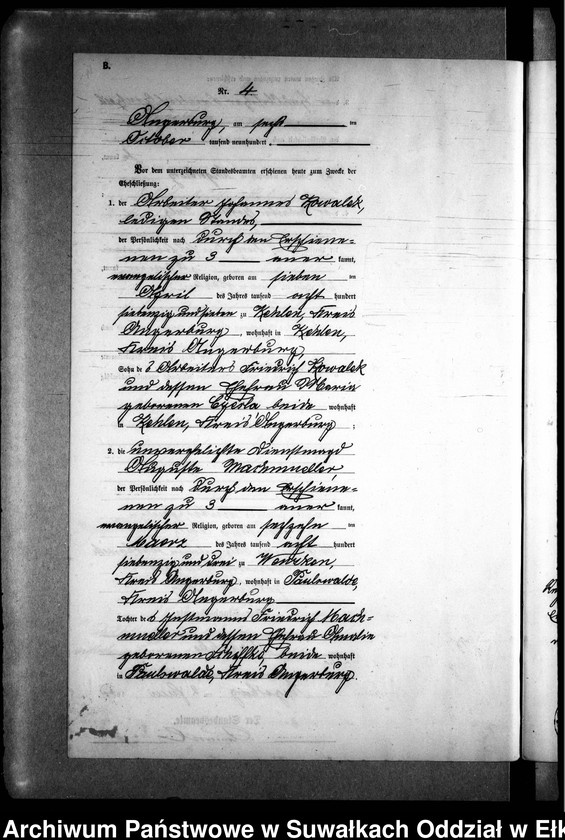 B.
Nr. 4
Angerburg, am sechsten
October tausend neunhundert
Vor dem unterzeichneten Standesbeamten erschienen heute zum Zwecke der
Eheschließung:
1. der Arbeiter Johannes Kowalek,
ledigen Standes,
der Persönlichkeit nach durch den Erschiene-
nen zu 3 aner kannt,
evangelischer Religion, geboren am sieben ten
April des Jahres tausend acht hundert
siebenzig und sieben zu Kehlen, Kreis
Angerburg, wohnhaft in Kehlen,
Kreis Angerburg,
Sohn des Arbeiters Friedrich Kowalek
und dessen Ehefrau Maria
geborenen beide wohnhaft
in Kehlen, Kreis Angerburg;
2. die unverehelichte Dienstmagd
Auguste Machmueller
der Persönlichkeit nach durch den Erschiene-
nen zu 3 aner kannt,
evangelischer Religion, geboren am sechzehn ten
Maerz des Jahres tausend acht hundert
siebenzig und drei zu Wenzken,
Kreis Angerburg, wohnhaft in Paulswalde,
Kreis Angerburg
Tochter des Instmanns Friedrich Mach-
mueller und dessen Ehefrau Amalie
geborenen beide wohnhaft
in Paulswalde, Kreis Angerburg.
Archiwum Państwowe w Suwałkach Oddział w Ełk